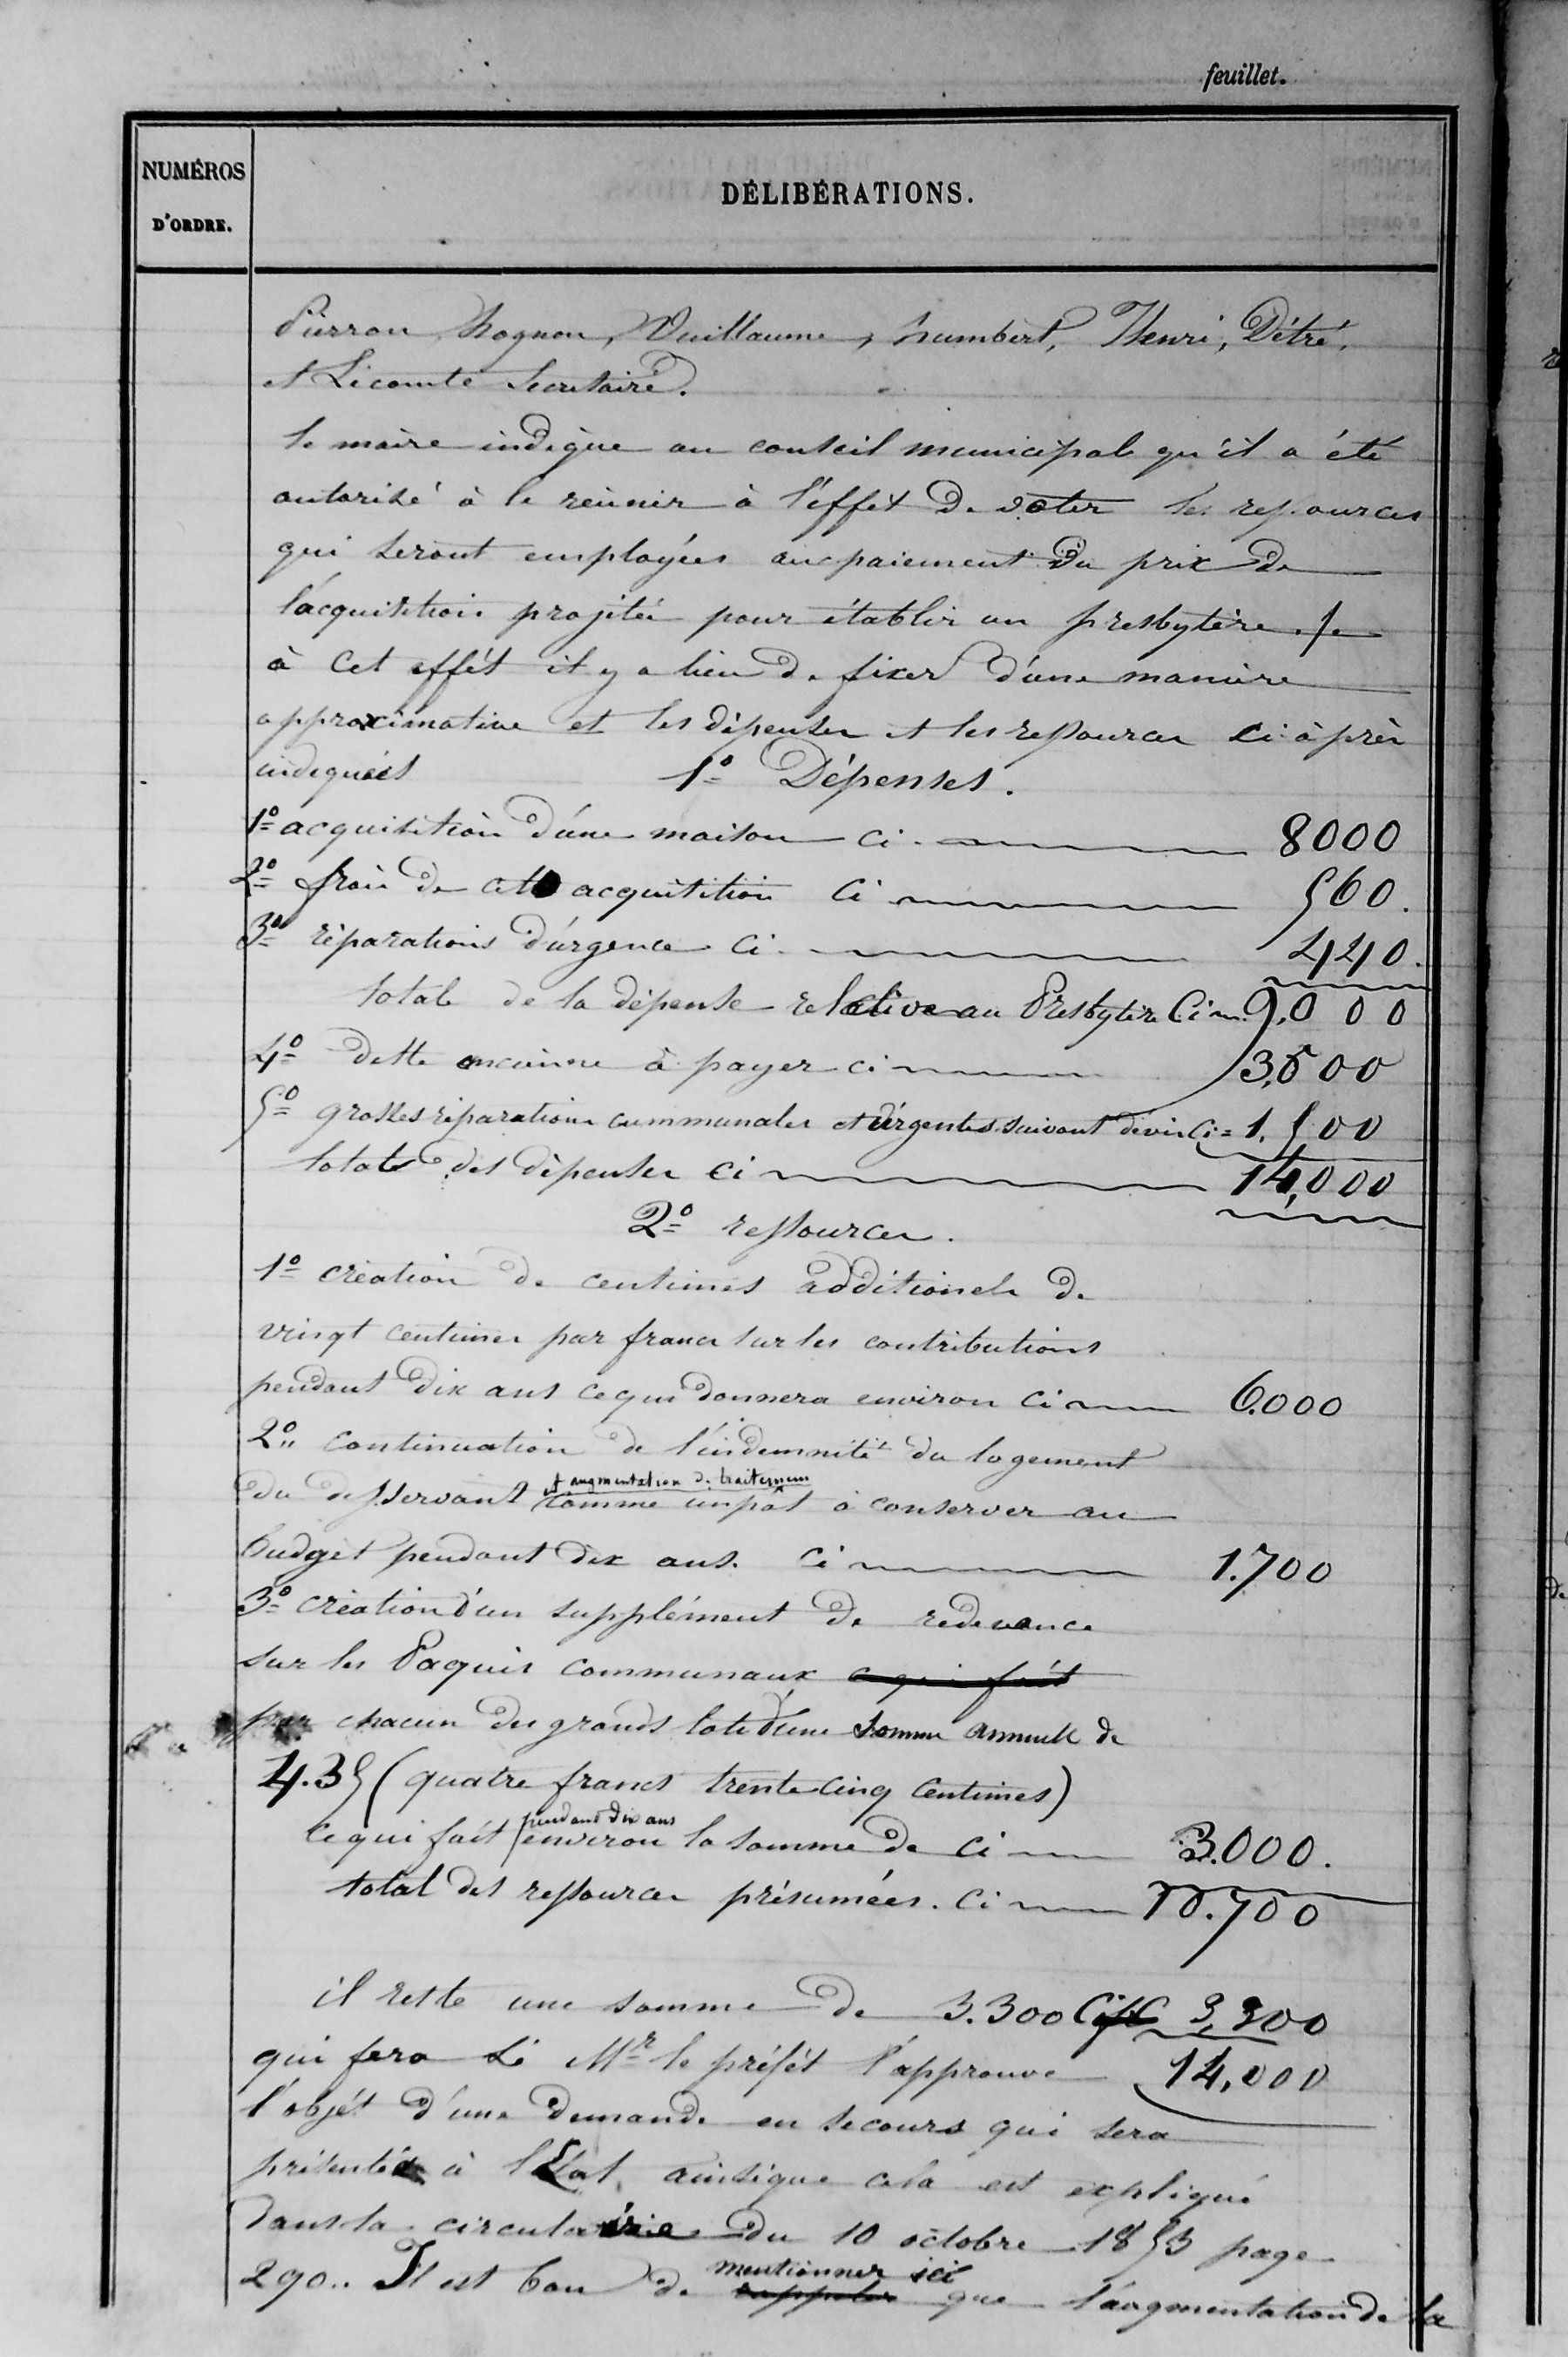 feuillet.
NUMÉROS
D'ORDRE.
DÉLIBÉRATIONS.
Pierron, Rognon, Vuillaume, humbert, Henri, Détré,
et Lecomte Secretaire.
le maire indique au conseil municipale qu'il a été
autorisé à le réunir à l'effet de voter les ressources
qui seront employées au paiement du prix de
l'acquisition projetée pour établir un presbytère
à cet effét il y a lieu de fixer d'une manière
approximative et les dépenses et les ressources ci-après
indiqueés 1º Dépenses.
1º acquisition d'une maison ci 8000
2º frais de cette acquisition Ci 560.
3º réparations d'urgence Ci 440.
total de la dépense relative au Presbytère Ci 9,000
4º dette ancienne à payer ci 3,500
5º grosses réparations communales et urgentes suivant devis Ci = 1,500
total des dépenses Ci 14,000
2º ressources.
1º création de centimes additionels de
vingt centimes par franc sur les contributions
pendant dix ans ce qui donnera environ Ci 6.000
2º continuation de l'indemnité du logement
et augmentation de traitement
du desservant comme impôt à conserver au
budget pendant dix ans. Ci 1.700
3º création d'un supplément de redevance
sur les Paquis communaux ce qui fait
par chacun des grands lots d'une somme annuelle de
4.35 (quatre francs trente cinq centimes)
pendant dix ans
ce qui fait environ la somme de Ci 3.000.
total des ressources présumées. Ci 10.700
il reste une somme de 3.300 Ci 3,300
qui fera si Mr le préfét l'approuve 14,000
l'objét d'une demande en secours qui sera
présentée à l'État, ainsi que cela est expliqué
dans la circulaire du 10 octobre 1853 page
mentionner ici
290.. Il est bon de rappeler que l'augmentation de la